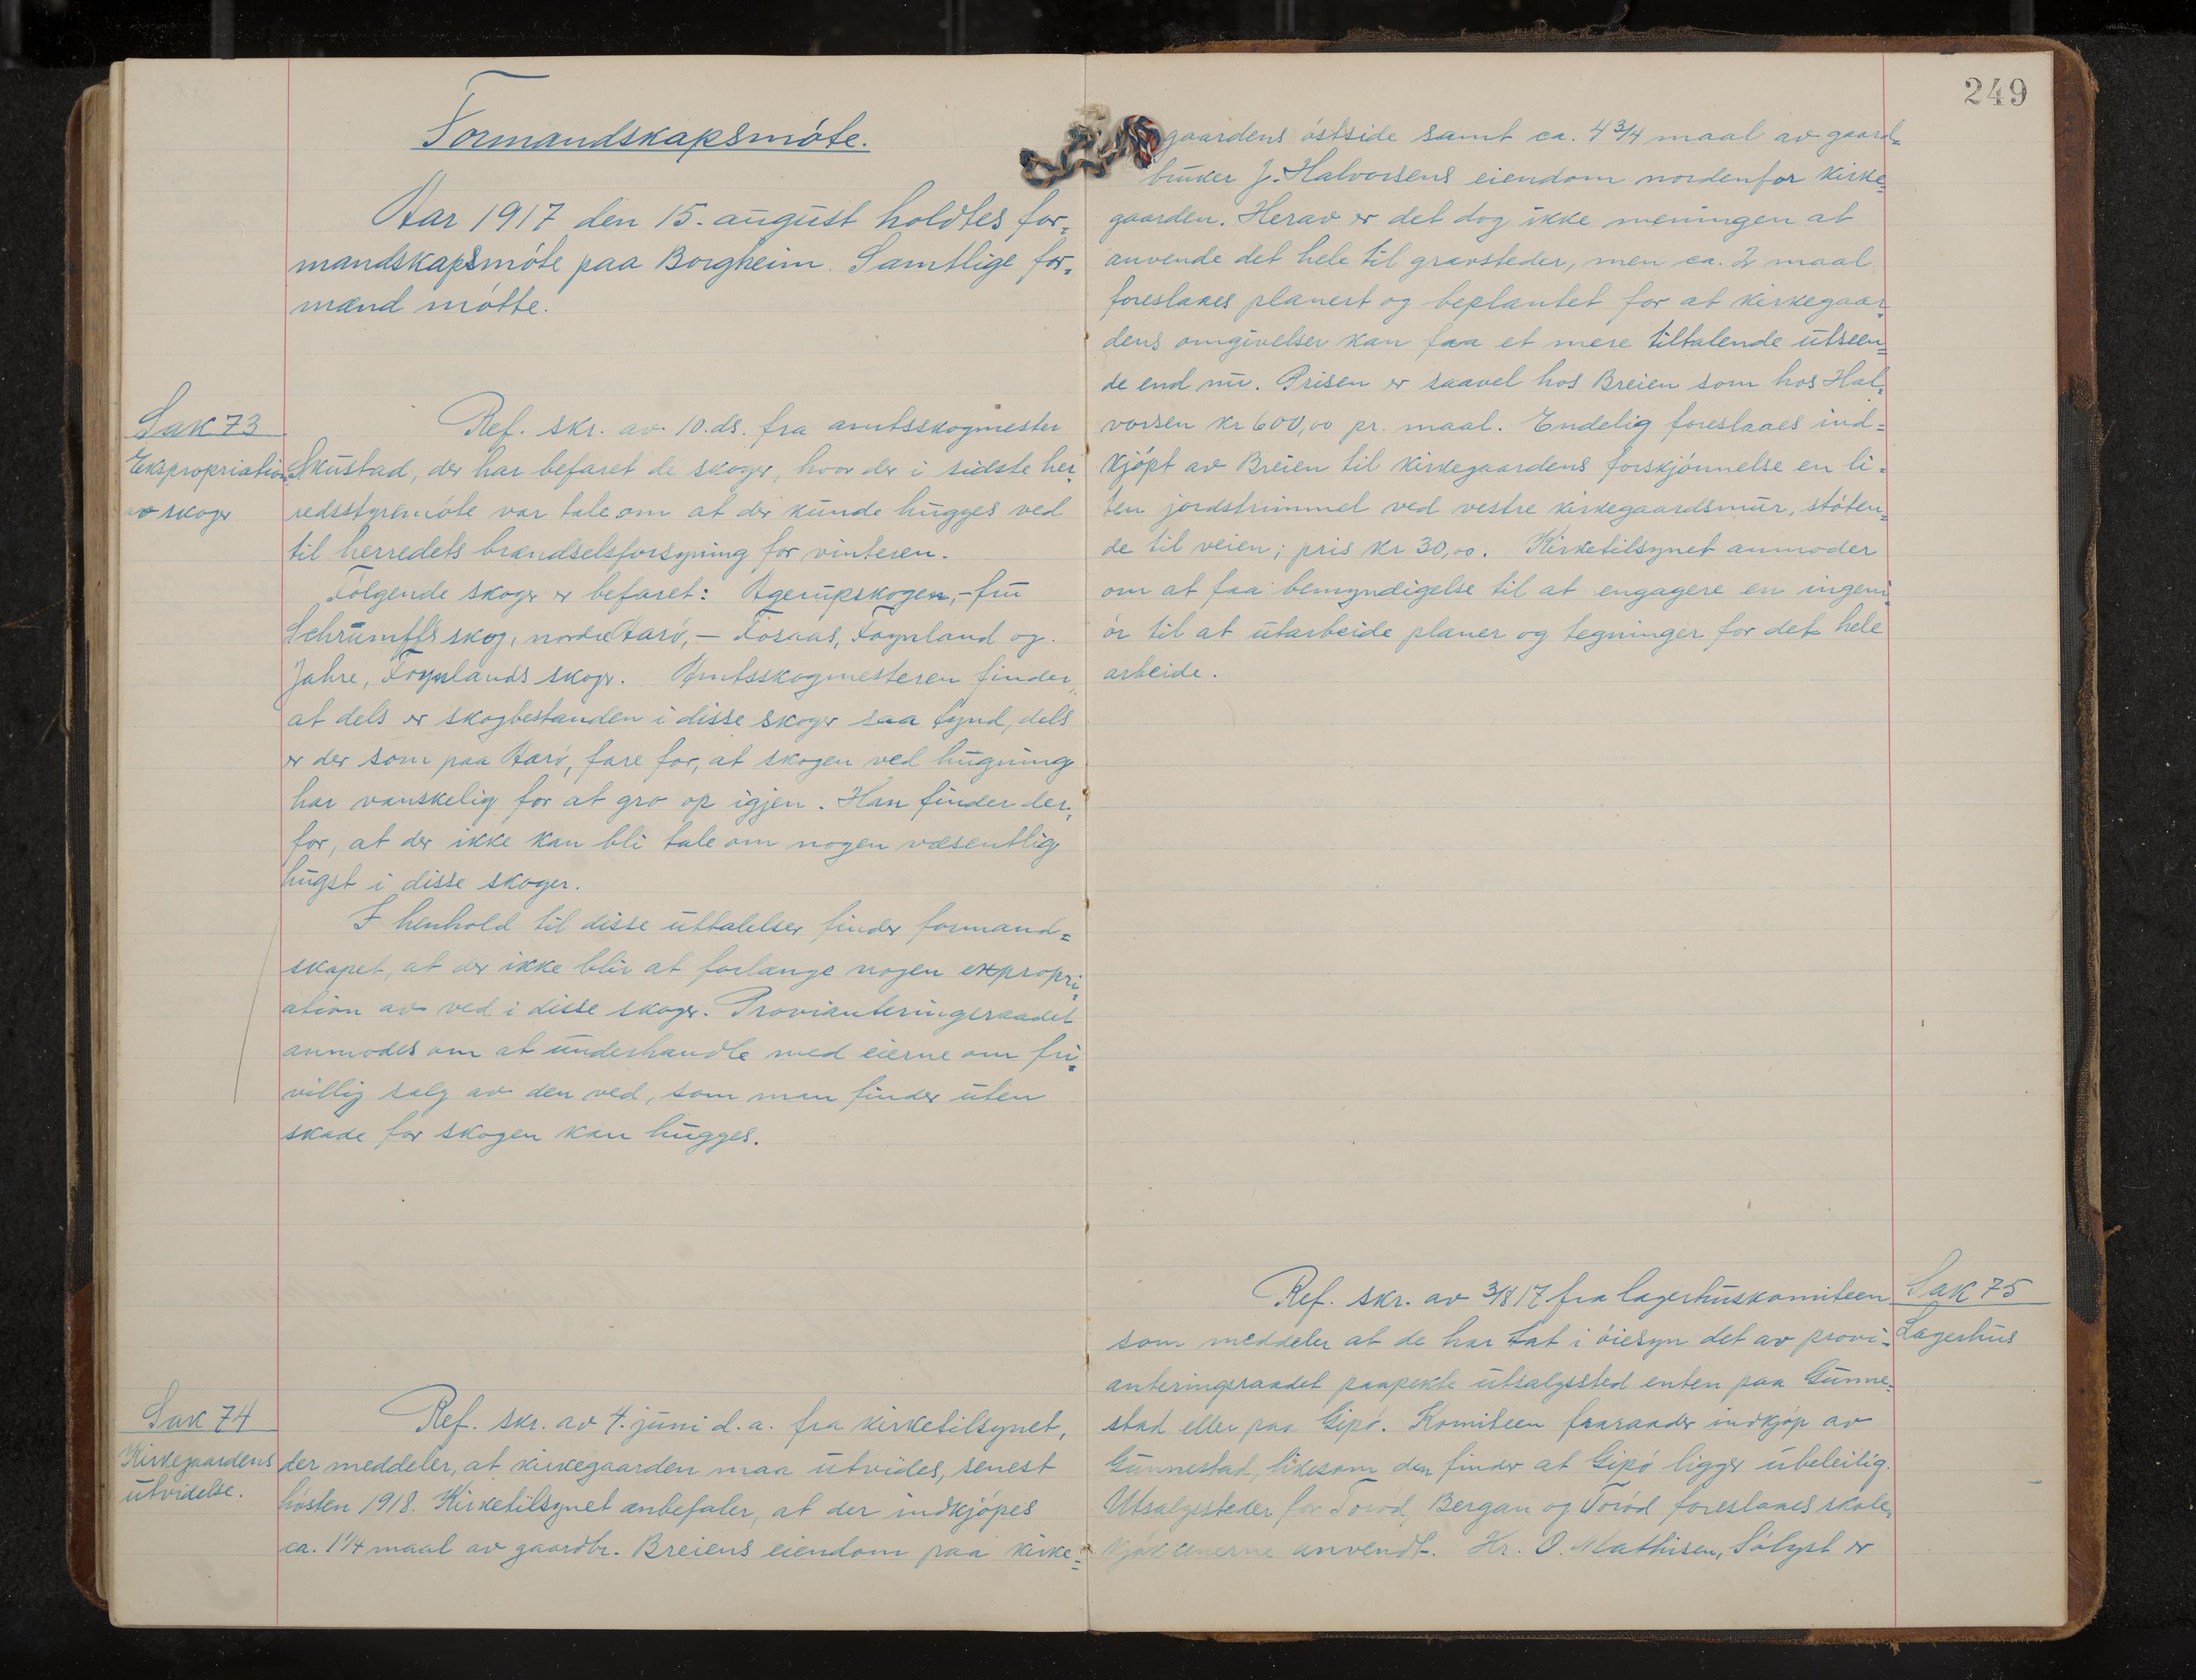 Formandskapsmöte.
Aar 1917 den 15. august holdtes for=
mandskapsmöte paa Borgheim. Samtlige for=
mænd mötte.
Sak 73
Ekspropriation
av skoger
Ref. skr. av 10. ds. fra amtsskogmester
Skustad, der har befaret de skoger, hvor der i sidste her=
redsstyremöte var tale om at der kunde hugges ved
til herredets brændselsforsyning for vinteren.
Fölgende skoger er befaret: Agerupskogen, - fru
Schrumpffs skog, nordre Aarö, — Fosaas, Föynland og
Jahre, Föynlands skoger. Amtsskogmesteren finder,
at dels er skogbestanden i disse skoger saa tynd, dels
er der som paa Aarö, fare for, at skogen ved hugning
har vanskelig for at gro op igjen. Han finder der=
for, at der ikke kan bli tale om nogen væsentlig
hugst i disse skoger.
I henhold til disse uttalelser finder formand=
skapet, at der ikke blir at forlange nogen expropri=
ation av ved i disse skoger. Provianteringsraadet
anmodes om at underhandle med eierne om fri=
villig salg av den ved, som man finder uten
skade for skogen kan hugges.
Sak 74
Kirkegaardens
utvidelse.
Ref. skr. av 4. juni d.a. fra kirketilsynet,
der meddeler, at kirkegaarden maa utvides, senest
hösten 1918. Kirketilsynet anbefaler, at der indkjöpes
ca. 1 1/4 maal av gaardbr. Breiens eiendom paa kirke=
249
gaardens östside samt ca. 4 3/4 maal av gaard=
bruker J. Halvorsens eiendom nordenfor kirke=
gaarden. Herav er det dog ikke meningen at
anvende det hele til gravsteder, men ca. 2 maal
foreslaaes planert og beplantet for at kirkegaar=
dens omgivelser kan faa et mere tiltalende utseen=
de end nu. Prisen er saavel hos Breien som hos Hal=
vorsen kr 600,00 pr. maal. Endelig foreslaaes ind=
kjöpt av Breien til kirkegaardens forskjönnelse en li=
ten jordstrimmel ved vestre kirkegaardsmur, stöten=
de til veien; pris kr 30,00. Kirketilsynet anmoder
om at faa bemyndigelse til at engagere en ingeni=
ör til at utarbeide planer og tegninger for det hele
arbeide.
Sak 75
Lagerhus
Ref. skr. av 3/8 17 fra lagerhuskomiteen
som meddeler at de har tat i öiesyn det av provi=
anteringsraadet paapekte utsalgssted enten paa Gunne=
stad eller paa Gipö. Komiteen fraraader indkjöp av
Gunnestad, likesom den finder at Gipö ligger ubeleilig.
Utsalgssteder for Toröd, Bergan og Toröd foreslaaes skole=
kjökkenerne anvendt. Hr. O. Mathisen, Sölyst er